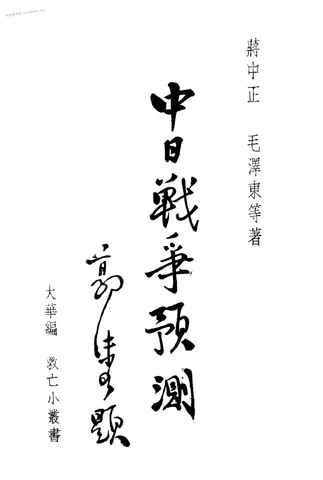 蔣中正　毛澤東等著
中日戰爭預測
郭沫若題
大華編　救亡小叢書